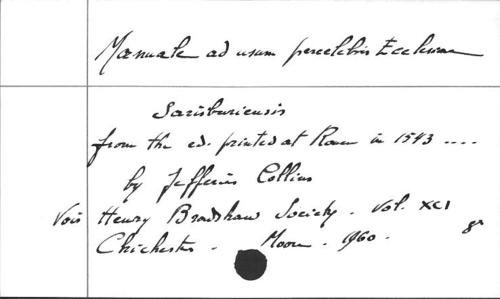 Manuale ad usum percelebris Ecclesiae
Sarisburiensis
from the ed. printed at Rouen in 1543 ....
by Jefferies Collins
Vois Henry Bradshaw Society. Vol. XCI
Chichester. Moore. 1960.